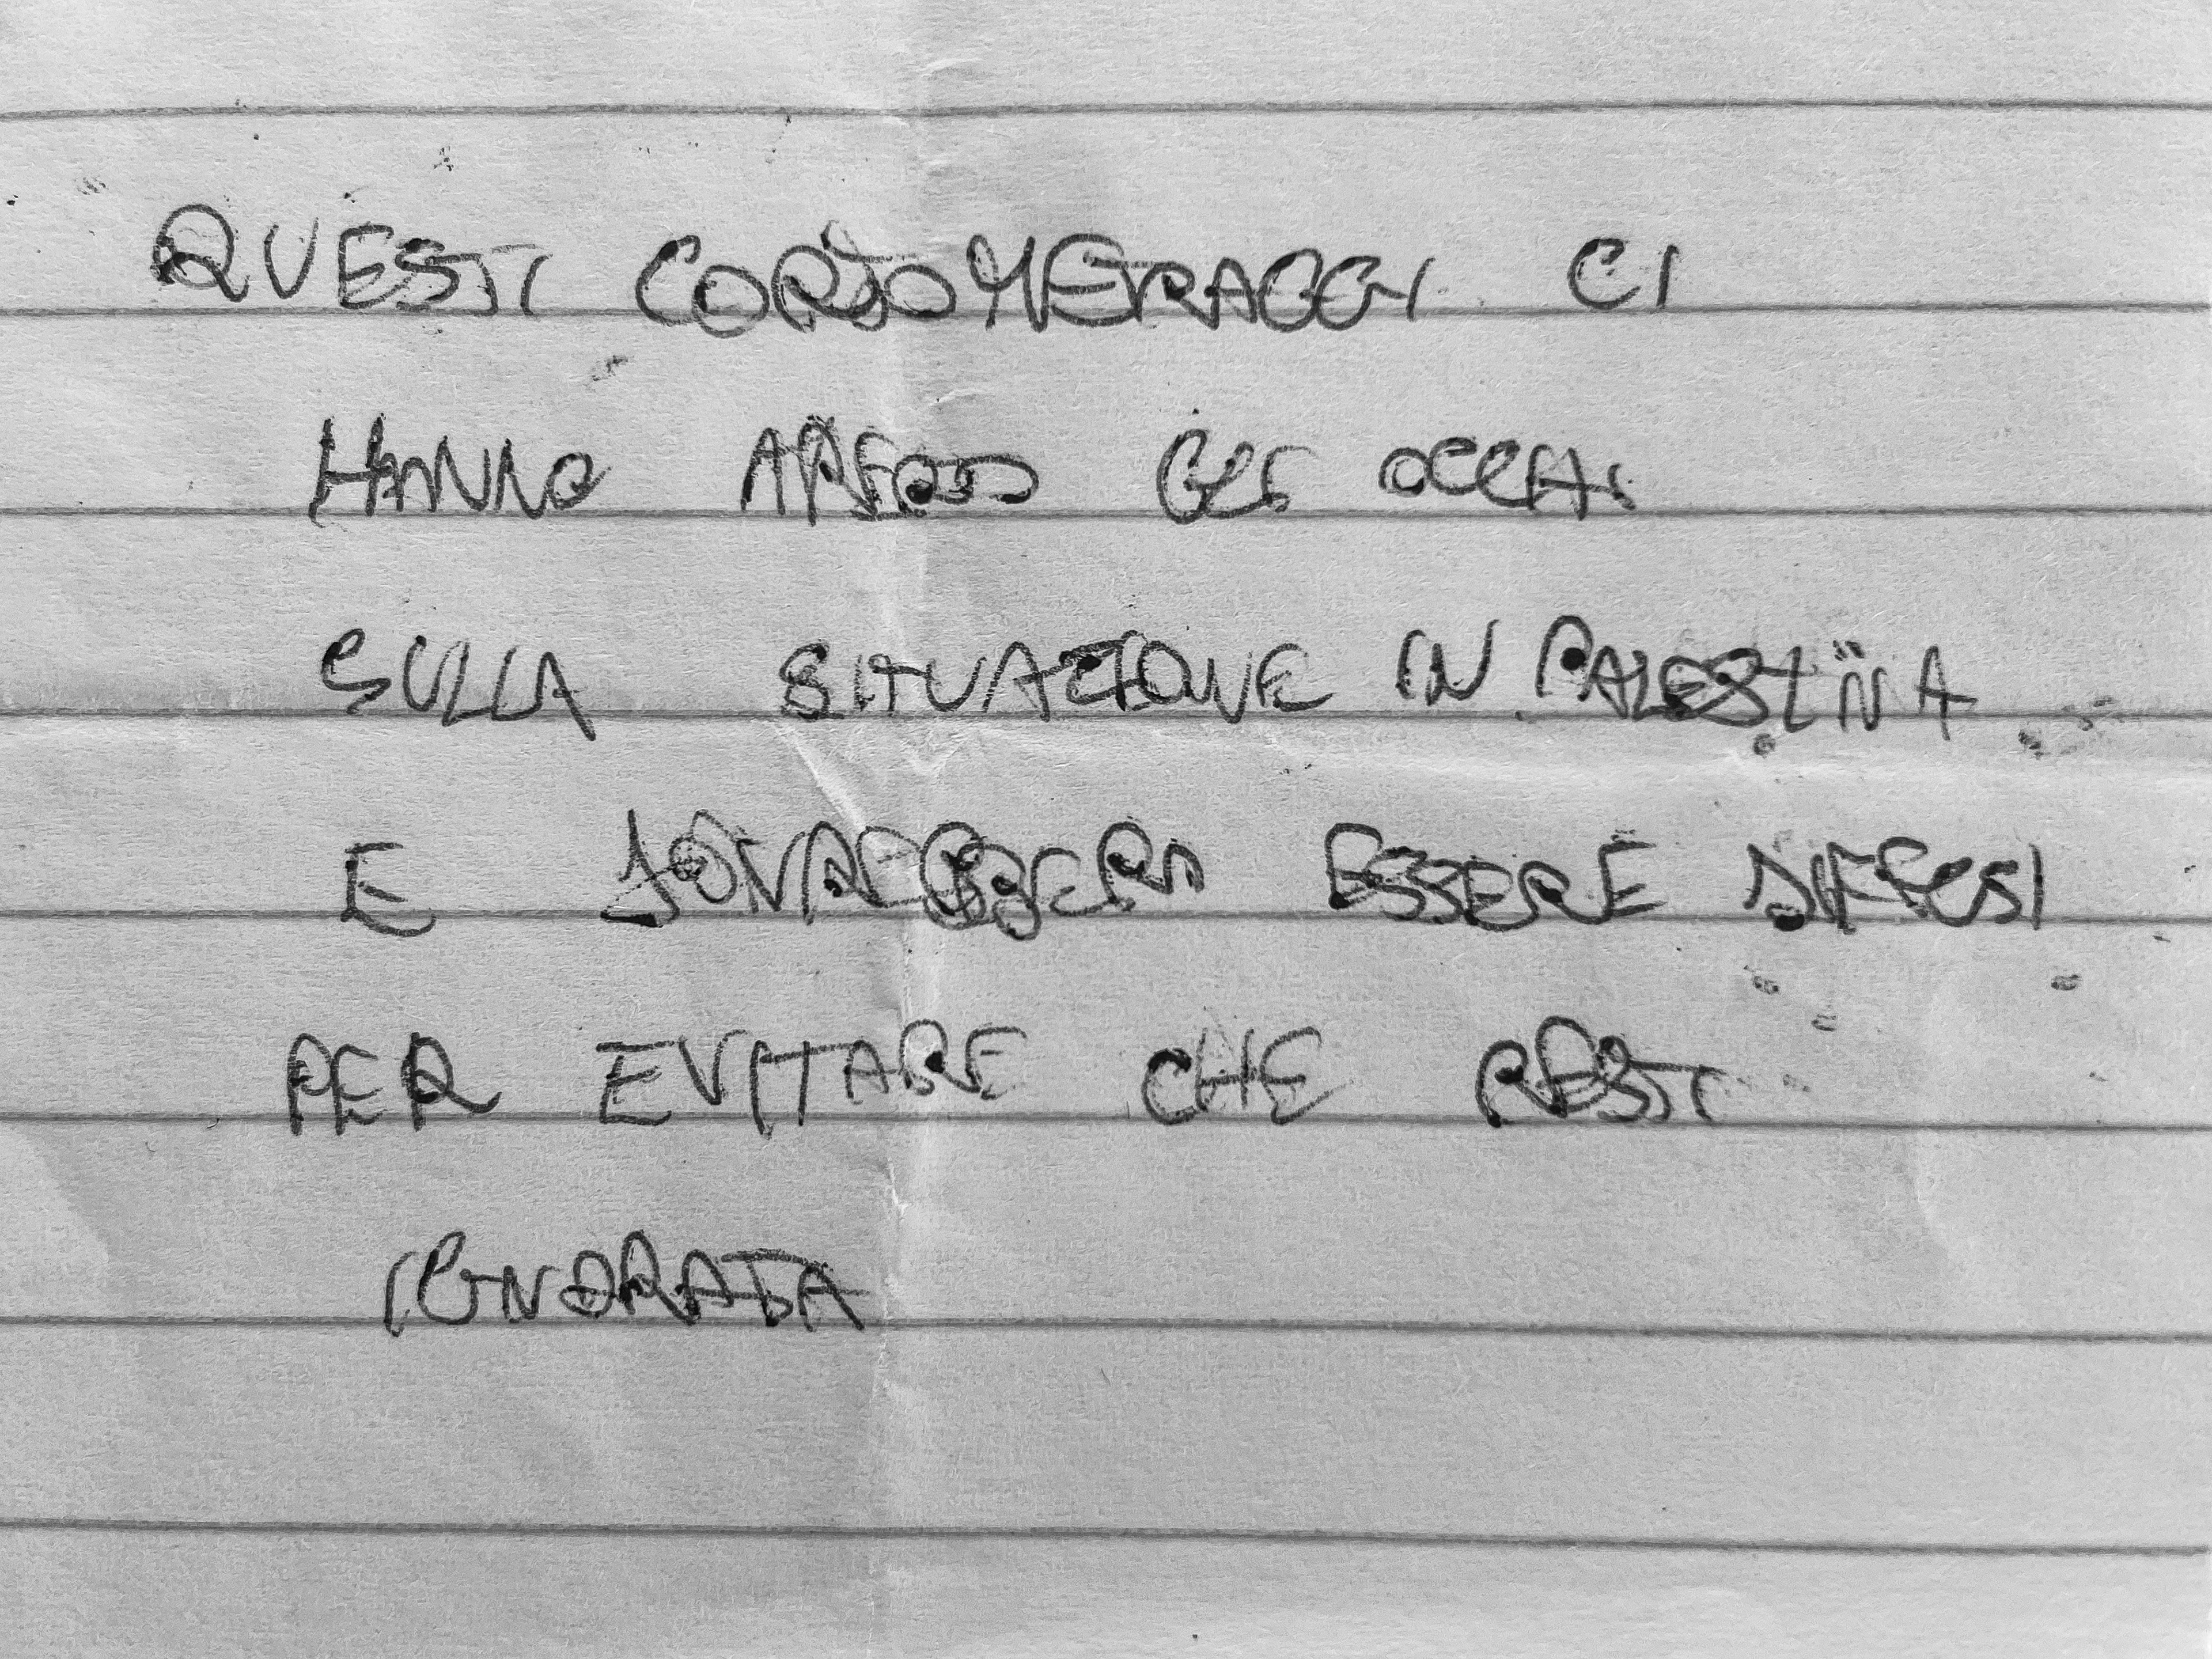 QUESTI CORTOMETRAGGI CI
HANNO APERTO GLI OCCHI
SULLA SITUAZIONE IN PALESTINA
E DOVREBBERO ESSERE DIFFUSI
PER EVITARE CHE RESTI
IGNORATA